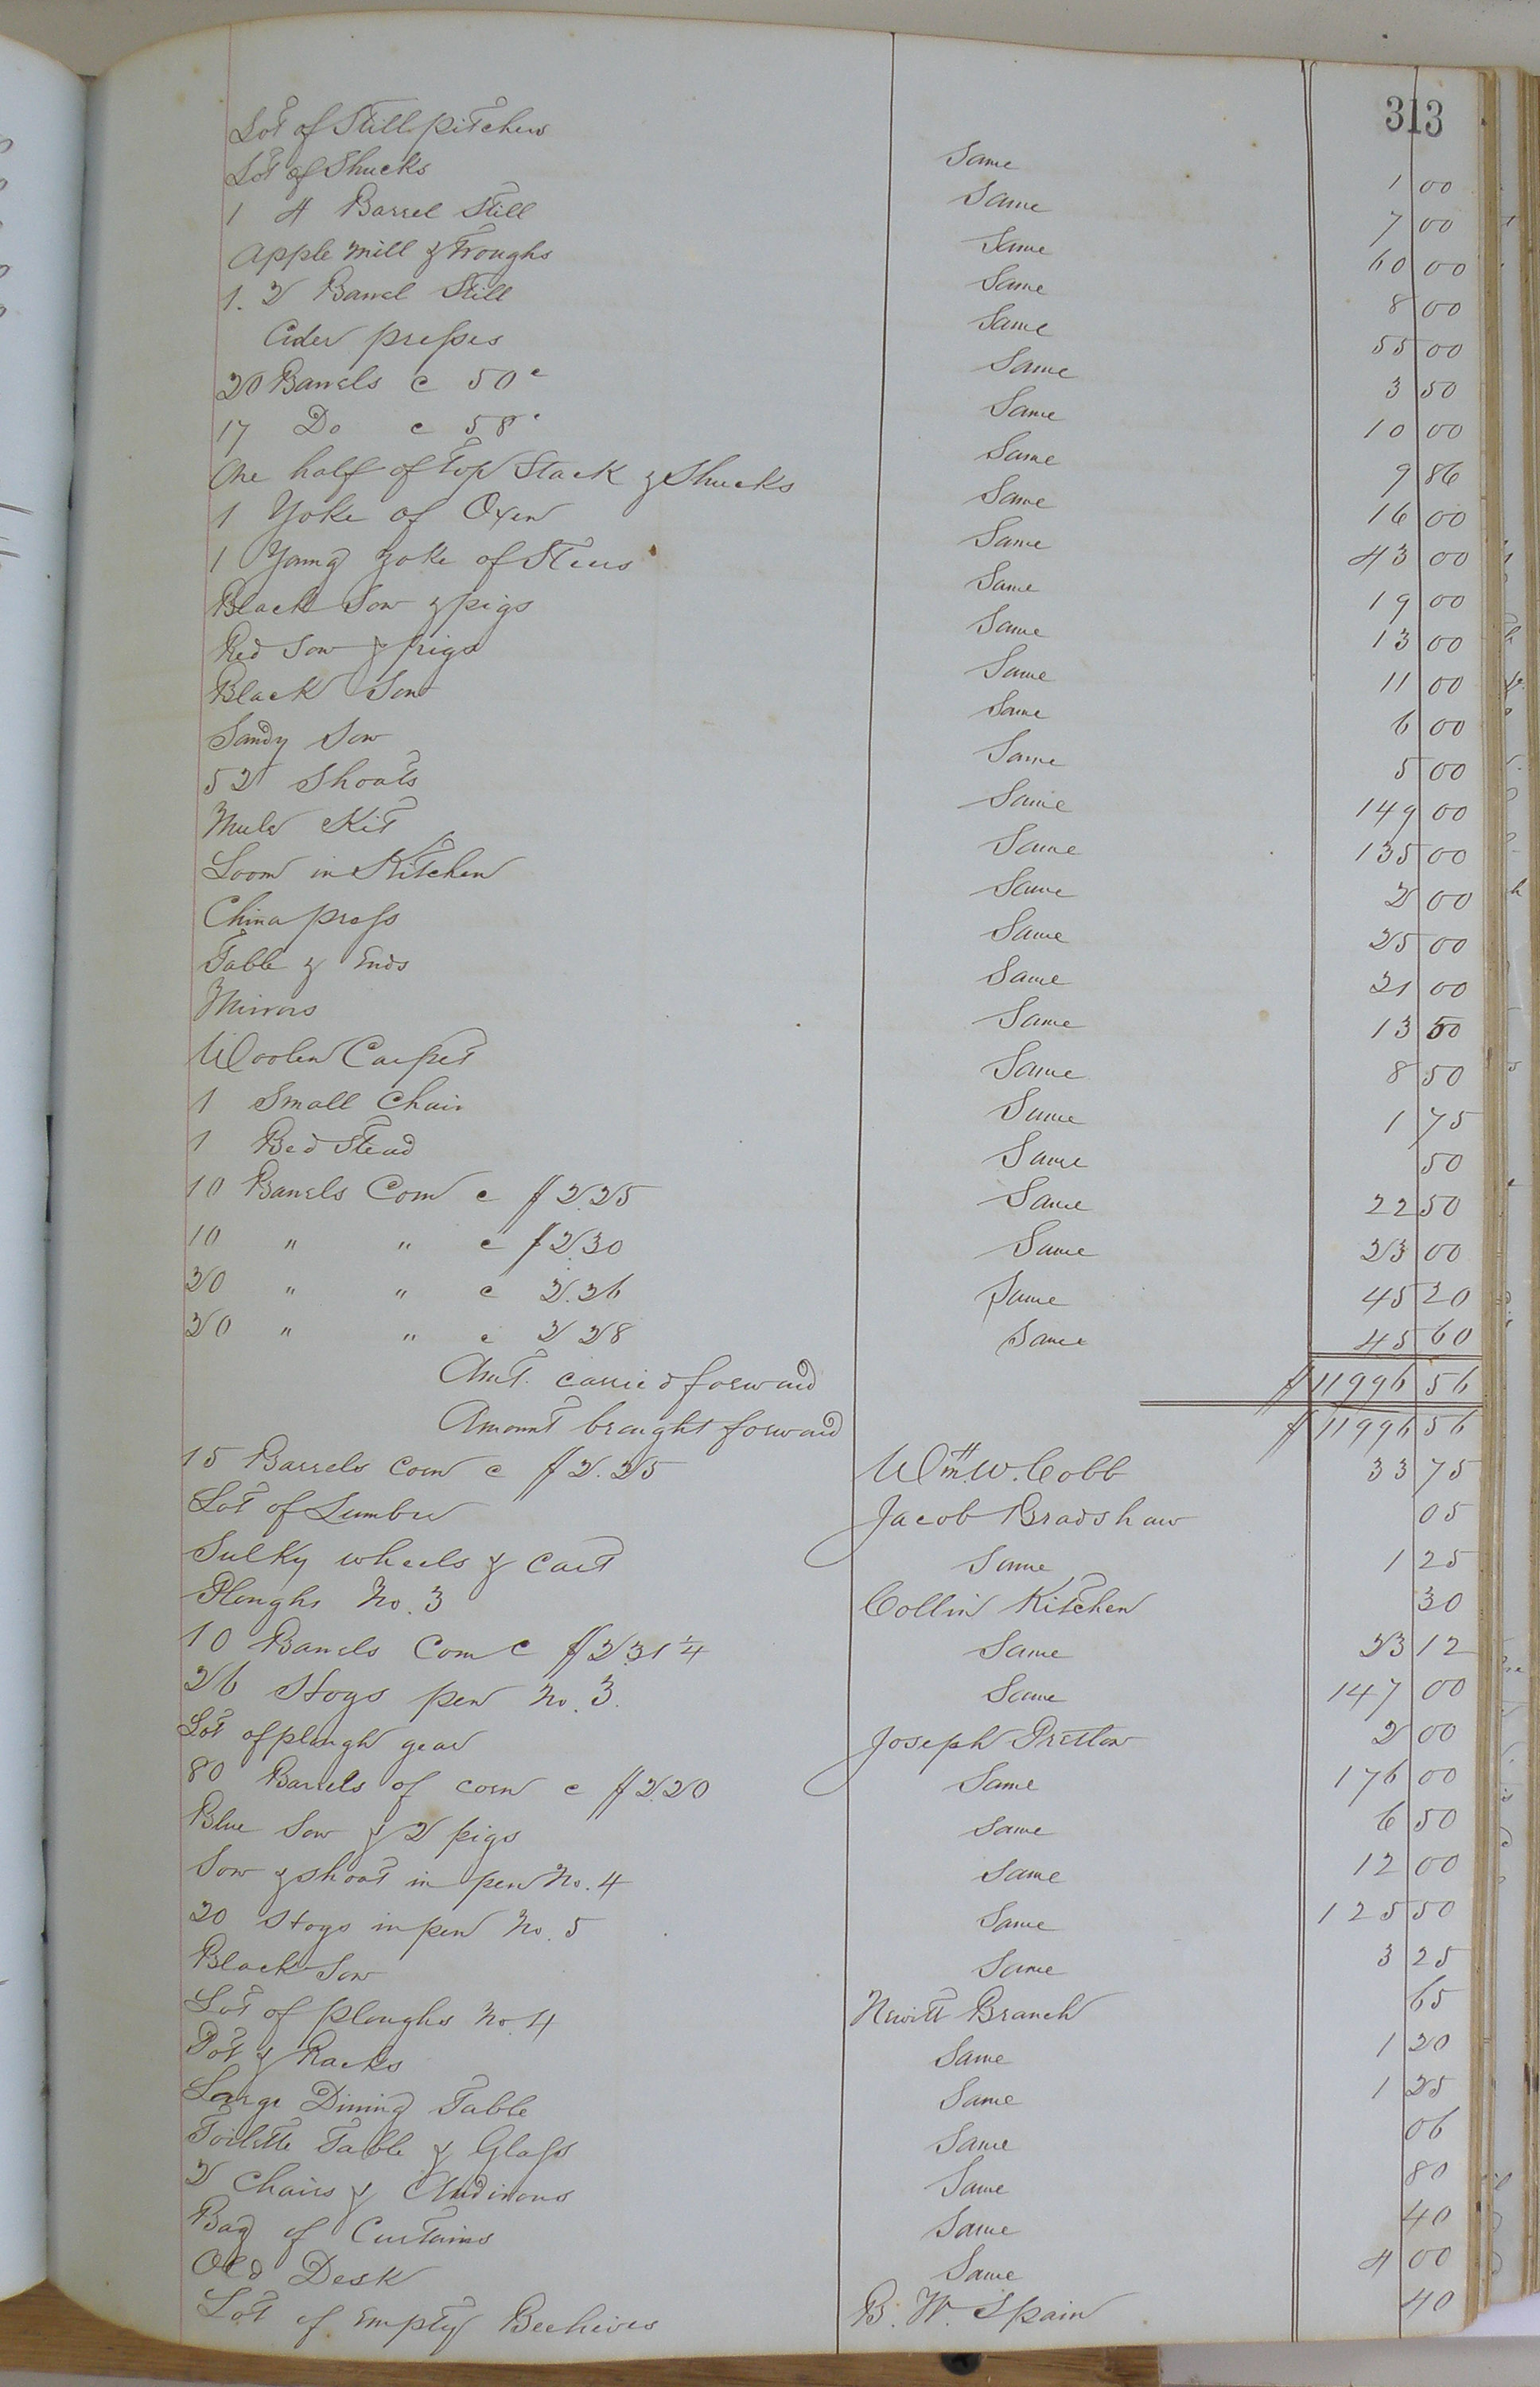 313
Lot of Still pitchers Same 1 00
Lot of Shucks Same 7 00
1 4 Barrel Still Same 60 00
Apple Mill & Troughs Same 8 00
1. 2 Barrel Still Same 55 00
Cider presses Same 3 50
20 Barrels @ 50c Same 10 00
17 Do @ 58c Same 9 86
One half of Top Stack & Shucks Same 16 00
1 Yoke of Oxen Same 43 00
1 Young yoke of Steers Same 19 00
Black Sow & pigs Same 13 00
Red Sow & pigs Same 11 00
Black Sow Same 6 00
Sandy Sow Same 5 00
52 Shoats Same 149 00
Mule Kit Same 135 00
Loom in Kitchen Same 2 00
China press Same 25 00
Table & Ends Same 21 00
Mirrors Same 13 50
Woolen Carpet Same 8 50
1 Small Chair Same 1 75
1 Bed Stead Same 50
10 Barrels Corn @ $2.25 Same 22 50
10 " " @ $2.30 Same 23 00
20 " " @ 2.26 Same 45 20
20 " " @ 2 28 Same 45 60
Amt. carried forward $11996 56
Amount brought forward $11996 56
15 Barrels corn @ $2.25 Wm. W. Cobb 33 75
Lot of Lumber Jacob Bradshaw 05
Sulky wheels & Cart Same 1 25
Ploughs No. 3 Collin Kitchen 30
10 Barrels Corn @ $2.31 1/4 Same 23 12
26 Hogs pen No. 3. Same 147 00
Lot of plough gear Joseph Pretlow 2 00
80 Barrels of corn @ $2.20 Same 176 00
Blue Sow & 2 pigs Same 6 50
Sow & shoat in pen No. 4 Same 12 00
20 Hogs in pen No. 5 Same 125 50
Black Sow Same 3 25
Lot of ploughs No. 4 Newitt Branch 65
Pot & Racks Same 1 20
Large Dining Table Same 1 25
Toilette Table & Glass Same 06
2 Chairs & Andirons Same 80
Bag of Curtains Same 40
Old Desk Same 4 00
Lot of Empty Beehives B. W. Spain 40